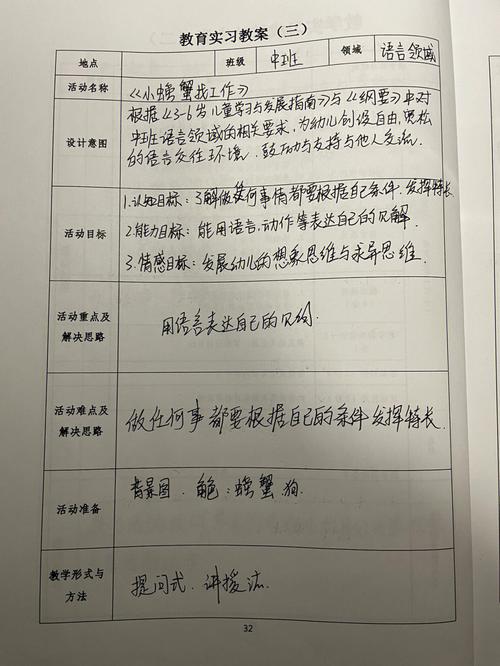 教育实习教案（三）
地点 班级 中班 领域 语言领域
活动名称 《小螃蟹找工作》
设计意图 根据《3-6岁儿童学习与发展指南》与《纲要》中对
中班语言领域的相关要求，为幼儿创设自由、宽松
的语言交往环境，鼓励与支持与他人交流.
活动目标 1.认知目标：了解做任何事情都要根据自己条件，发挥特长
2.能力目标：能用语言，动作等表达自己的见解.
3.情感目标：发展幼儿的想象思维与求异思维.
活动重点及解决思路 用语言表达自己的见解.
活动难点及解决思路 做任何事都要根据自己的条件发挥特长.
活动准备 背景图. 角色：螃蟹 狗.
教学形式与方法 提问式. 讲授法.
32